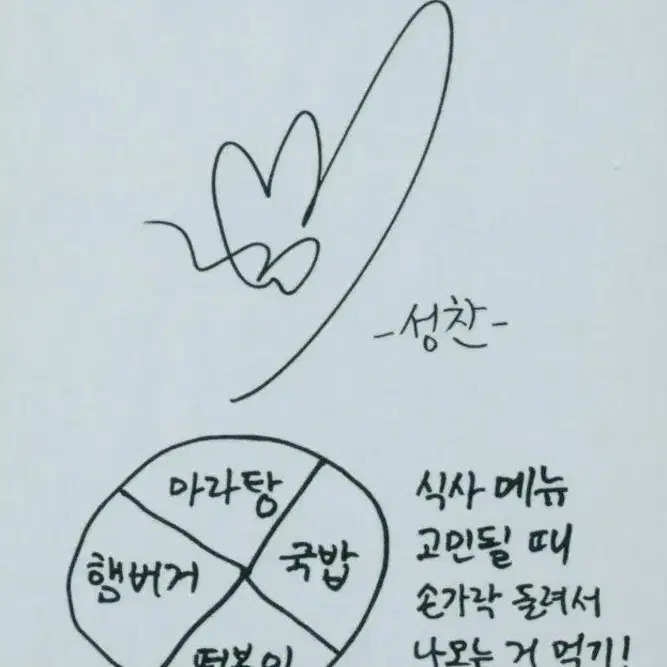 -성찬-
마라탕
국밥
햄버거
떡볶이
식사 메뉴
고민될 때
손가락 돌려서
나오는 거 먹기!